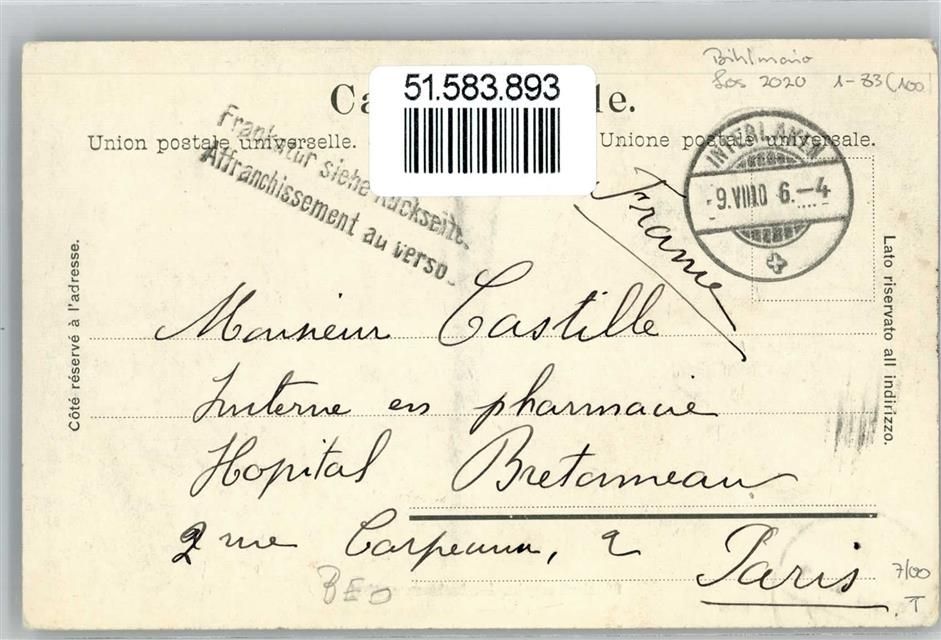 Bihlmaio
Los 2020 1-83 (100)
51.583.893
Ca le.
Union postale universelle. Unione postale universale.
Frankatur siehe Rückseite.
Affranchissement au verso.
INTERLAKEN
-9.VII.10 6.-4
France
Côté réservé à l'adresse.
Lato riservato all indirizzo.
Monsieur Castille
Interne en pharmacie
Hopital Bretonneau
2 rue Carpeaux, 2
Paris
BEO
7/00
T